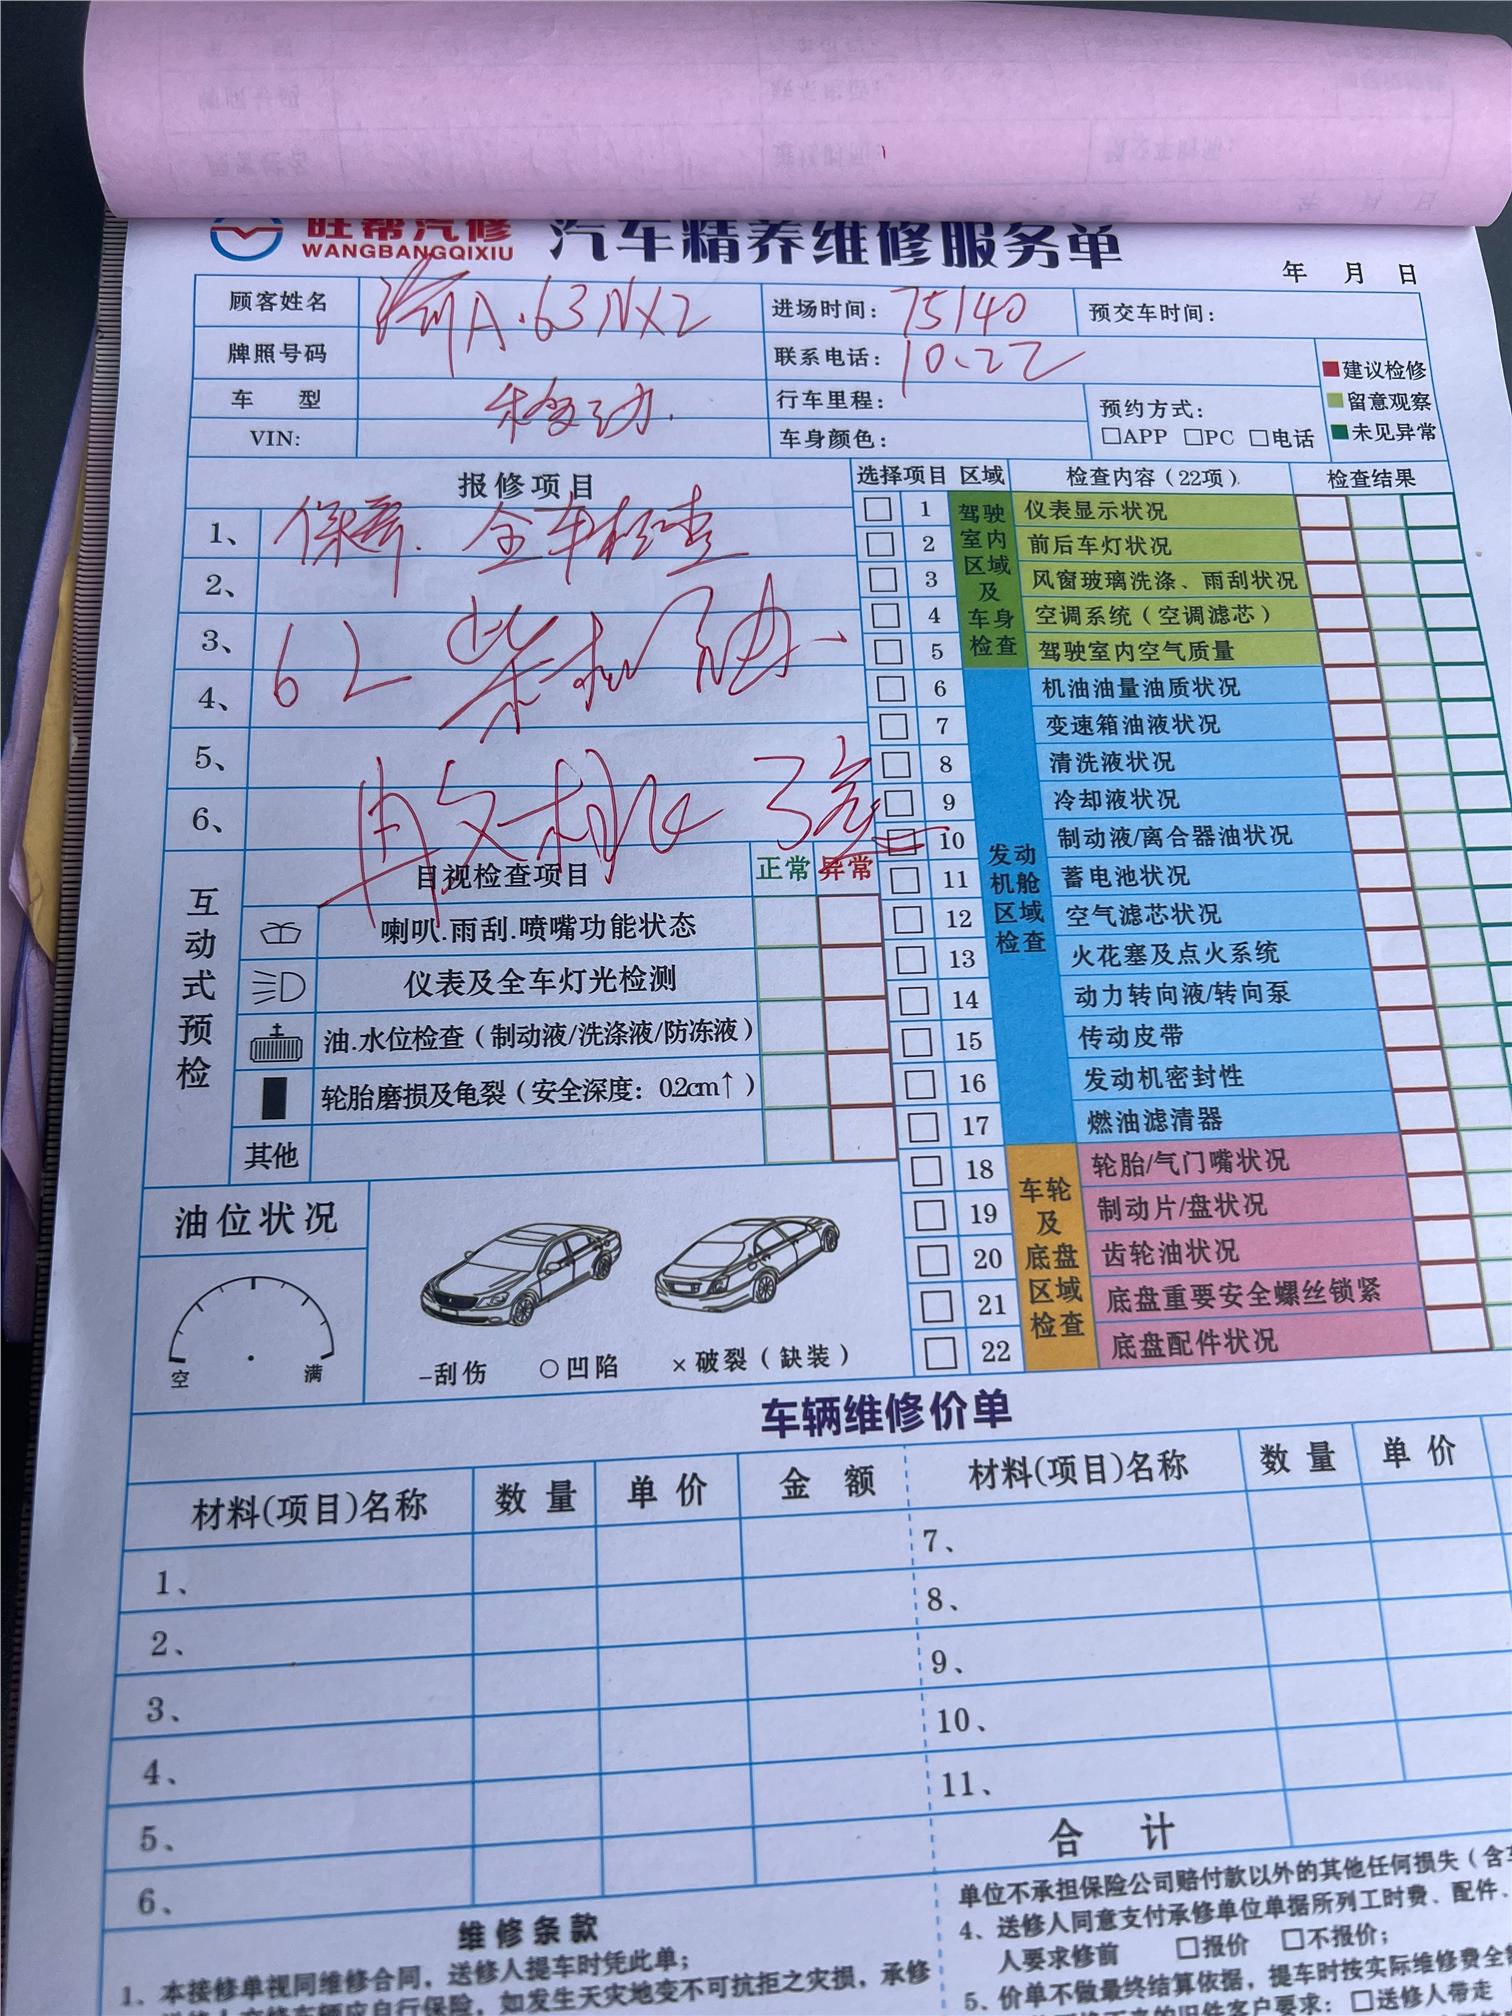 旺帮汽修
WANGBANGQIXIU
汽车精养维修服务单
年 月 日
顾客姓名
渝A·63NX2
进场时间: 75140
预交车时间:
牌照号码
联系电话: 10.22
车 型
行车里程:
预约方式:
□APP □PC □电话
VIN:
车身颜色:
建议检修
留意观察
未见异常
报修项目
1、 保养. 全车检查
2、
3、 6L 柴机油
4、
5、
6、
选择项目 区域 检查内容(22项) 检查结果
驾驶室内区域及车身检查
1 仪表显示状况
2 前后车灯状况
3 风窗玻璃洗涤、雨刮状况
4 空调系统(空调滤芯)
5 驾驶室内空气质量
发动机舱区域检查
6 机油油量油质状况
7 变速箱油液状况
8 清洗液状况
9 冷却液状况
10 制动液/离合器油状况
11 蓄电池状况
12 空气滤芯状况
13 火花塞及点火系统
14 动力转向液/转向泵
15 传动皮带
16 发动机密封性
17 燃油滤清器
车轮及底盘区域检查
18 轮胎/气门嘴状况
19 制动片/盘状况
20 齿轮油状况
21 底盘重要安全螺丝锁紧
22 底盘配件状况
互动式预检
目视检查项目 正常 异常
喇叭.雨刮.喷嘴功能状态
仪表及全车灯光检测
油.水位检查(制动液/洗涤液/防冻液)
轮胎磨损及龟裂(安全深度: 0.2cm↑)
其他
油位状况
空 满
-刮伤 ○凹陷 ×破裂(缺装)
车辆维修价单
材料(项目)名称 数量 单价 金额 材料(项目)名称 数量 单价
1、 7、
2、 8、
3、 9、
4、 10、
5、 11、
6、 合计
维修条款
1、本接修单视同维修合同,送修人提车时凭此单;
送修人交修车辆应自行保险,如发生天灾地变不可抗拒之灾损,承修
单位不承担保险公司赔付款以外的其他任何损失(含
4、送修人同意支付承修单位单据所列工时费、配件、
人要求修前 □报价 □不报价;
5、价单不做最终结算依据,提车时按实际维修费全
旧件客户要求: □送修人带走